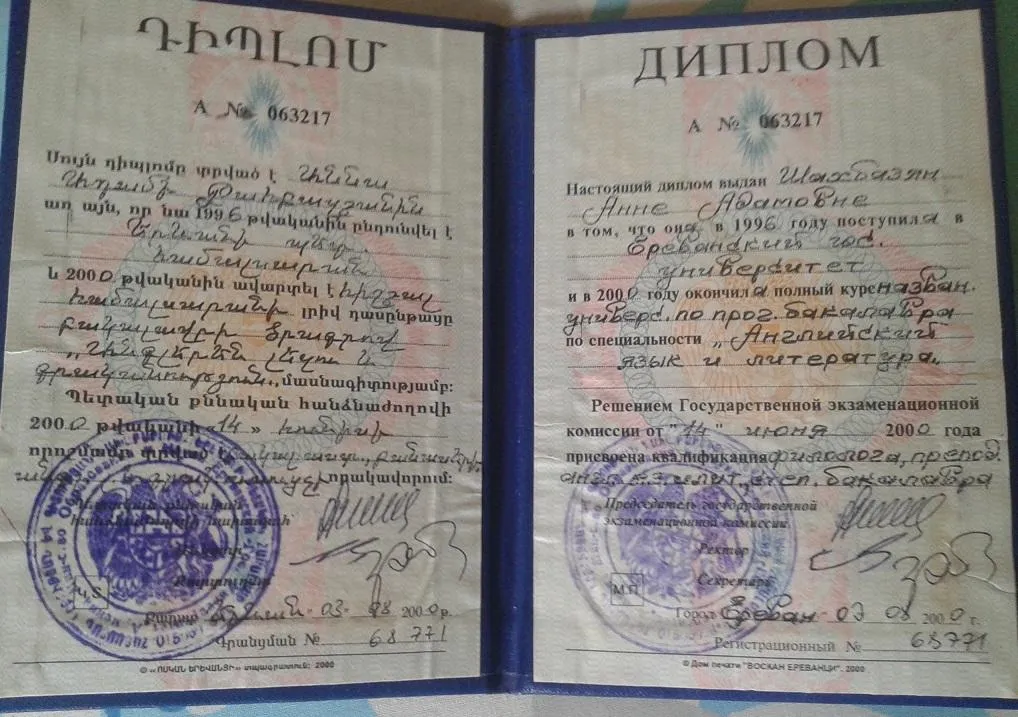 ԴԻՊԼՈՄ
Ա № 063217
Սույն դիպլոմը տրված է Աննա
առ այն, որ նա 1996 թվականին ընդունվել է
Երևանի պետ.
համալսարան
և 2000 թվականին ավարտել է
համալսարանի լրիվ դասընթացը
բակալավրի ծրագրով
„Անգլերեն լեզու և
գրականություն„ մասնագիտությամբ:
Պետական քննական հանձնաժողովի
2000 թվականի «14» հունիսի
որոշմամբ տրված է
որակավորում:
Կ.Տ.
Քաղաք Երևան 03 08 2000 թ.
Գրանցման № 68771
© «ՈՍԿԱՆ ԵՐԵՎԱՆՑԻ» տպագրատուն: 2000
ДИПЛОМ
А № 063217
Настоящий диплом выдан Шахбазян
Анне Адамовне
в том, что она в 1996 году поступила в
Ереванский гос.
университет
и в 2000 году окончила полный курс назван.
универс. по прог. бакалавра
по специальности „Английский
язык и литература„
Решением Государственной экзаменационной
комиссии от "14" июня 2000 года
присвоена квалификация филолога, препод.
англ. яз. и лит., степ. бакалавра
Председатель государственной
экзаменационной комиссии
Ректор
Секретарь
М.П
Город Ереван 03 08 2000 г.
Регистрационный № 68771
© Дом печати "ВОСКАН ЕРЕВАНЦИ". 2000